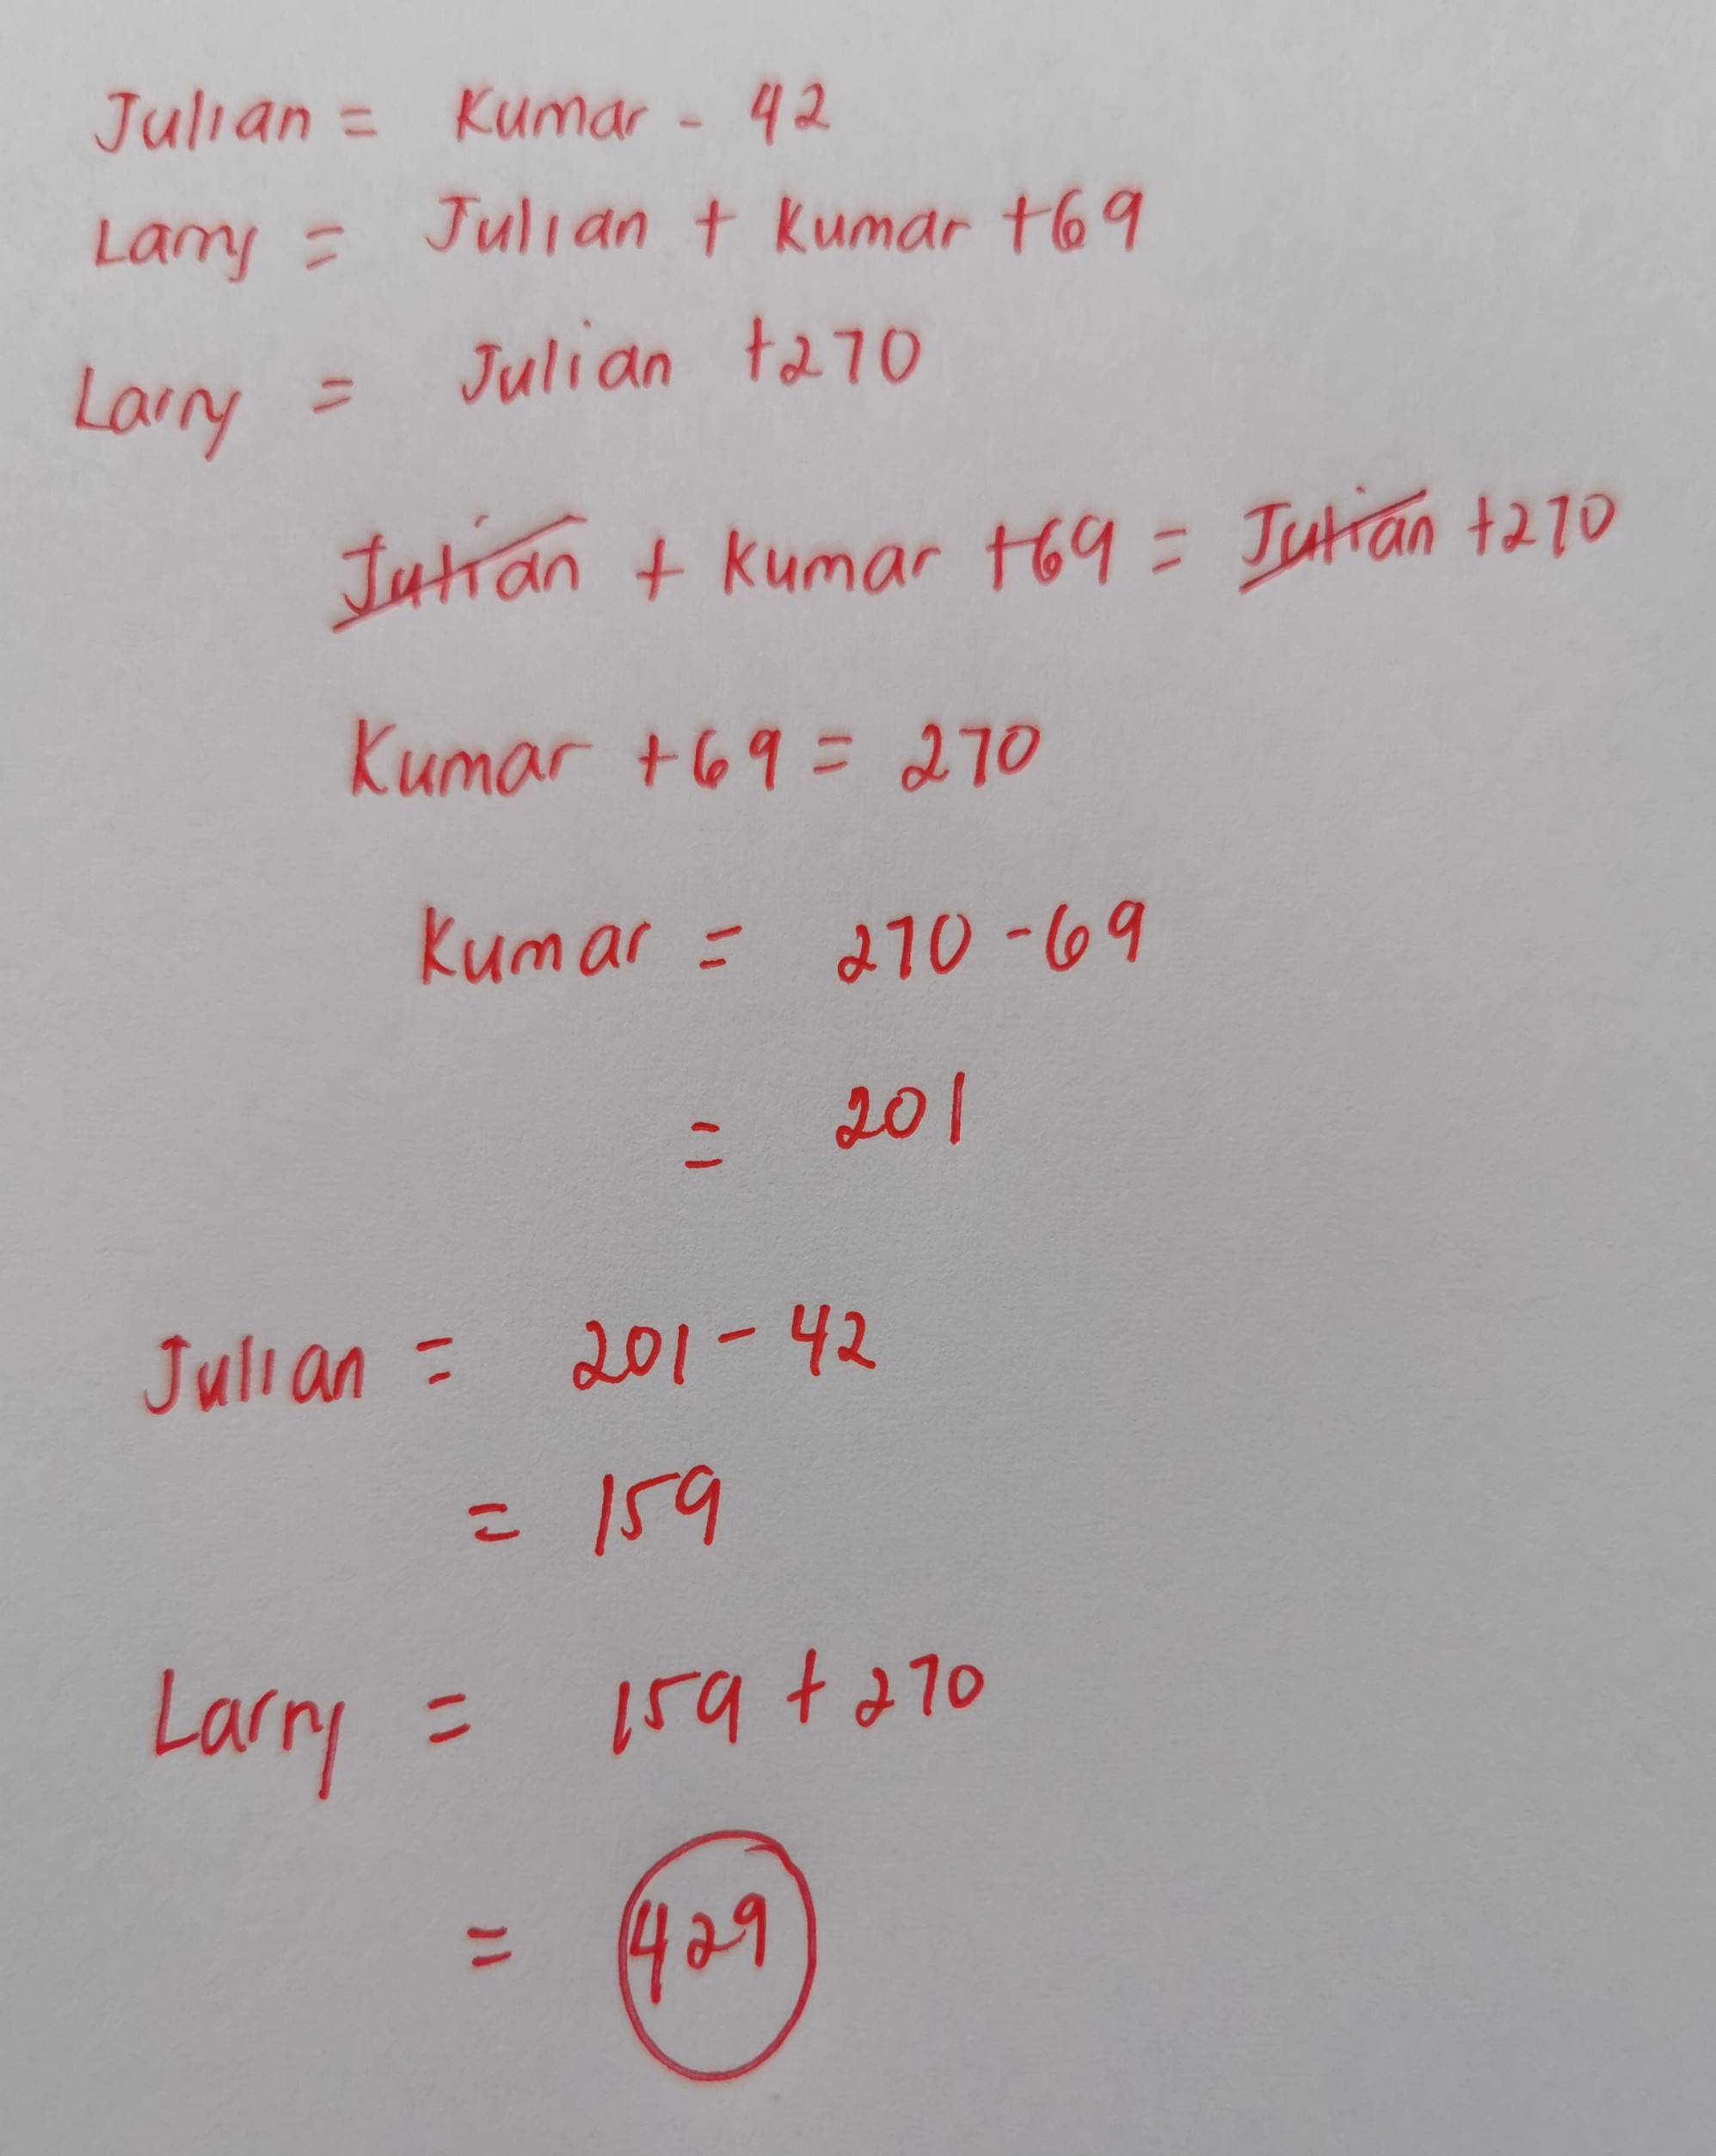 Julian = Kumar - 42
Larry = Julian + Kumar +69
Larry = Julian +270
Julian + Kumar +69 = Julian +270
Kumar +69 = 270
Kumar = 270 - 69
= 201
Julian = 201 - 42
= 159
Larry = 159 + 270
= 429